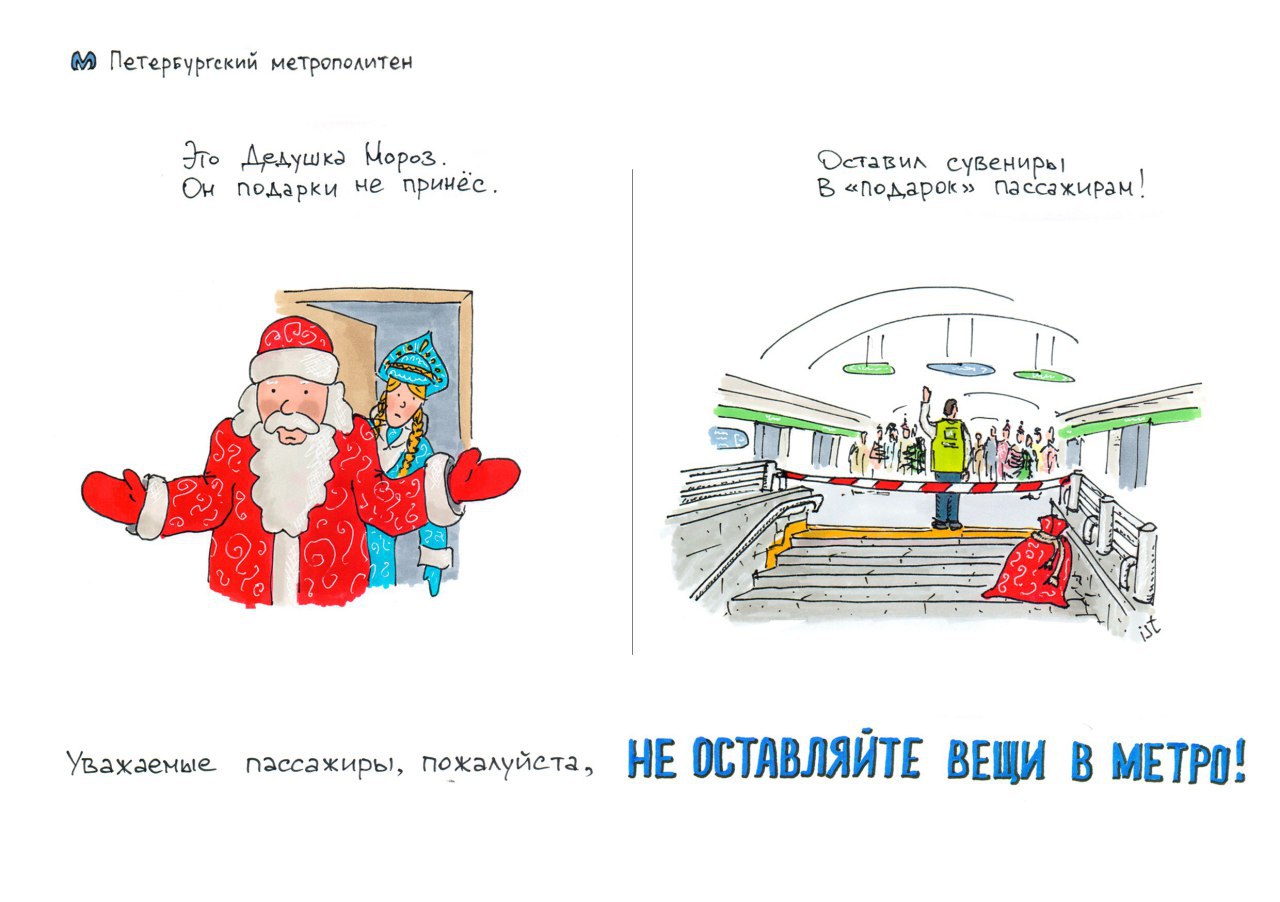 М Петербургский метрополитен
Это Дедушка Мороз.
Он подарки не принёс.
Оставил сувениры
в «подарок» пассажирам!
ist
Уважаемые пассажиры, пожалуйста, НЕ ОСТАВЛЯЙТЕ ВЕЩИ В МЕТРО!